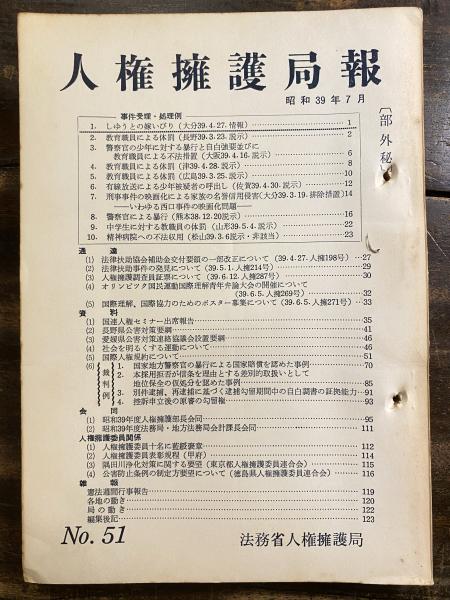 人権擁護局報
昭和39年7月
〔部外秘〕
事件受理・処理例
1. しゆうとの嫁いびり(大分39.4.27.情報) 1
2. 教育職員による体罰(長野39.3.23.説示) 2
3. 警察官の少年に対する暴行と自白強要並びに
教育職員による不法措置(大阪39.4.16.説示) 6
4. 教育職員による体罰(津39.4.28.説示) 8
5. 教育職員による体罰(広島39.3.25.説示) 10
6. 有線放送による少年被疑者の呼出し(佐賀39.4.30.説示) 12
7. 刑事事件の映画化による家族の名誉信用侵害(大分39.3.19.排除措置) 14
――いわゆる西口事件の映画化問題――
8. 警察官による暴行(熊本38.12.20説示) 16
9. 中学生に対する教職員の体罰(山形39.5.4.説示) 22
10. 精神病院への不法収用(松山39.3.6説示・非該当) 23
通達
(1) 法律扶助協会補助金交付要領の一部改正について(39.4.27.人権198号) 27
(2) 法律扶助事件の発見について(39.5.1.人権214号) 29
(3) 人権擁護調査員証票について(39.6.12.人擁287号) 30
(4) オリンピツク国民運動国際理解青年弁論大会の開催について
(39.6.5.人権269号) 32
(5) 国際理解、国際協力のためのポスター募集について(39.6.5.人権271号) 33
資料
(1) 国連人権セミナー出席報告 35
(2) 長野県公害対策要綱 41
(3) 愛媛県公害対策連絡協議会設置要綱 46
(4) 社会を明るくする運動について 46
(5) 国際人権規約について 51
(6) 裁判例
1. 国家地方警察官の暴行による国家賠償を認めた事例 70
2. 本採用拒否が信条を理由とする差別的取扱いとして
地位保全の仮処分を認めた事例 85
3. 別件逮捕、再逮捕に基づく逮捕勾留期間中の自白調書の証拠能力 91
4. 控訴申立後の原審の勾留権 93
会同
(1) 昭和39年度人権擁護部長会同 95
(2) 昭和39年度法務局・地方法務局会計課長会同 111
人権擁護委員関係
(1) 人権擁護委員十名に藍綬褒章 112
(2) 人権擁護委員表彰規程(甲府) 114
(3) 隅田川浄化対策に関する要望(東京都人権擁護委員連合会) 115
(4) 公害防止条例の制定方要望について(徳島県人権擁護委員連合会) 116
雑報
憲法週間行事報告 119
各地の動き 120
局の動き 122
編集後記 123
No. 51
法務省人権擁護局